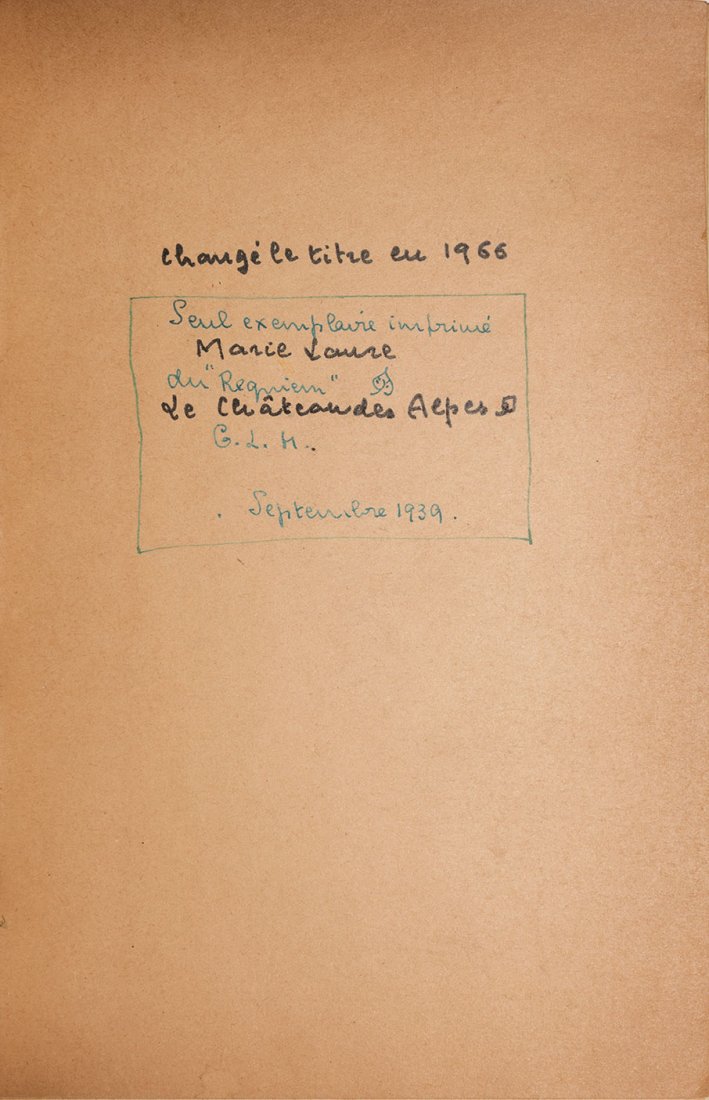 changé le titre en 1966
Seul exemplaire imprimé
Marie Laure
du "Requiem"
Le Château des Alpes
G. L. M.
. Septembre 1939.